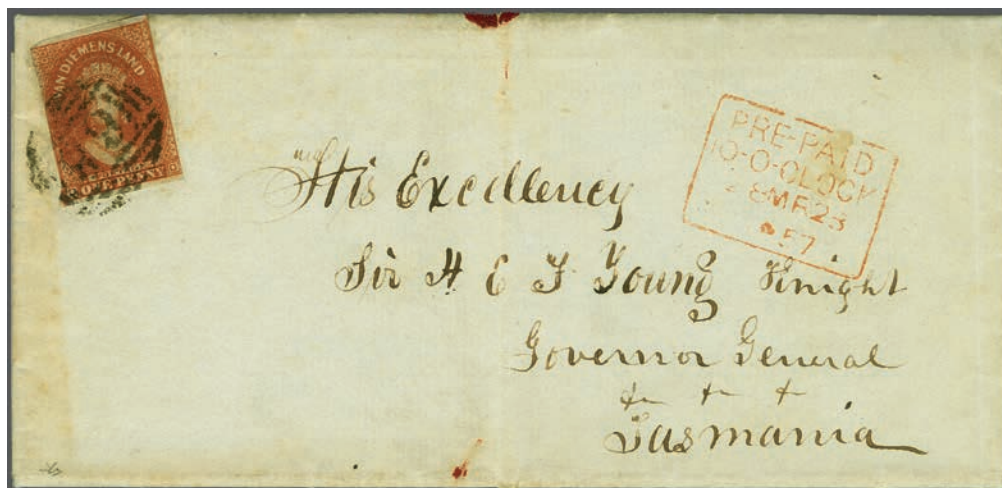 VAN DIEMENS LAND
ONE PENNY
PRE-PAID
10-O-CLOCK
8 MR 23
57
His Excellency
Sir H E F Young Knight
Governor General
&c &c &c
Tasmania